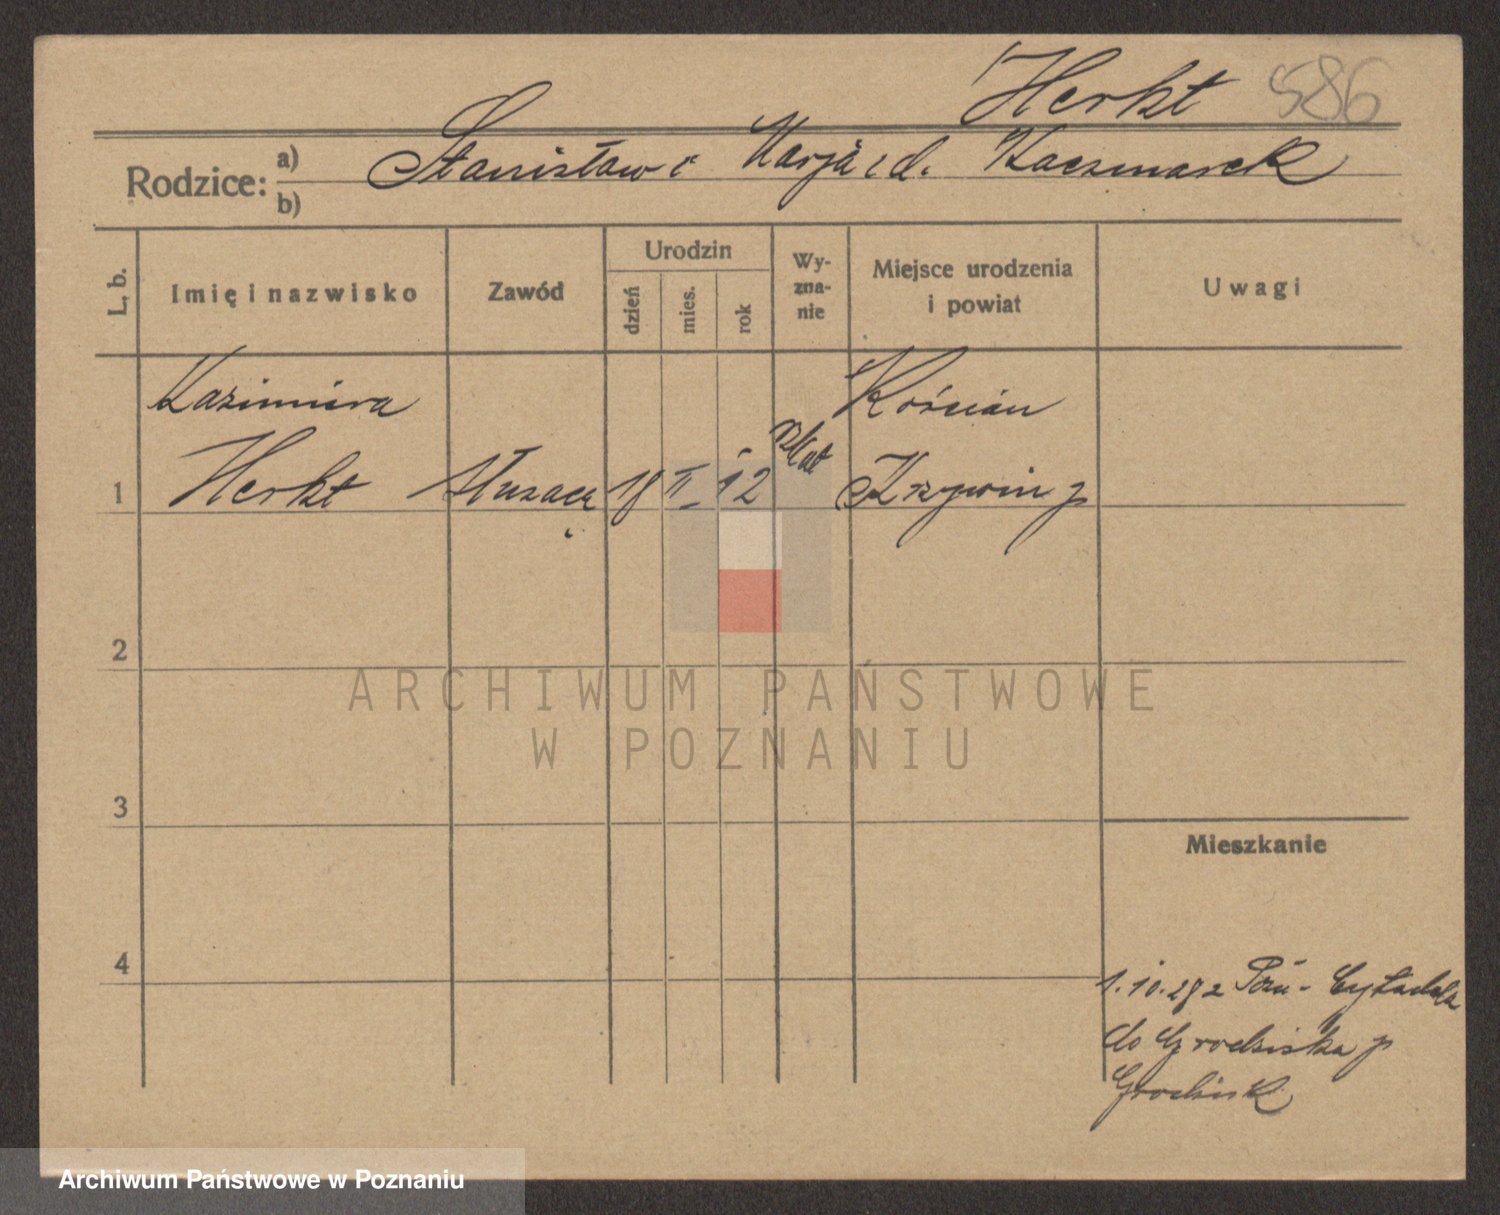 Herkt 586
Rodzice: a) Stanisław i Marja z d. Kaczmarek
b)
L. b.
Imię i nazwisko
Zawód
Urodzin
dzień
mies.
rok
Wy-
zna-
nie
Miejsce urodzenia
i powiat
Uwagi
Kazimiera
Herkt
służąca
18 II 12
rz kat
Kościan
Krzywin p
1
2
3
4
ARCHIWUM PAŃSTWOWE
W POZNANIU
Mieszkanie
1.10.28 z Pozn - Cytadela
do Grodziska p
Grodzisk
Archiwum Państwowe w Poznaniu